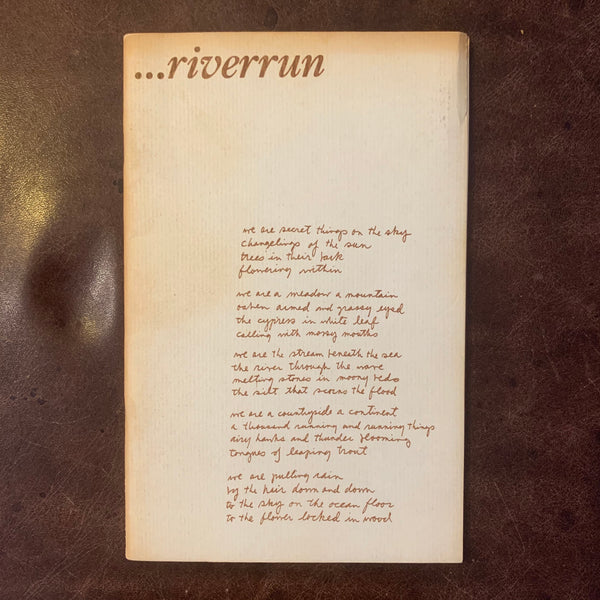 ...riverrun
we are secret things on the sky
changelings of the sun
trees in their bark
flowering within
we are a meadow a mountain
oaken armed and grassy eyed
the cypress in white leaf
calling with mossy mouths
we are the stream beneath the sea
the river through the wave
melting stones in moony beds
the silt that scorns the flood
we are a countryside a continent
a thousand running and running things
airy hawks and thunder blooming
tongues of leaping trout
we are pulling rain
by the hair down and down
to the sky on the ocean floor
to the flower locked in wood